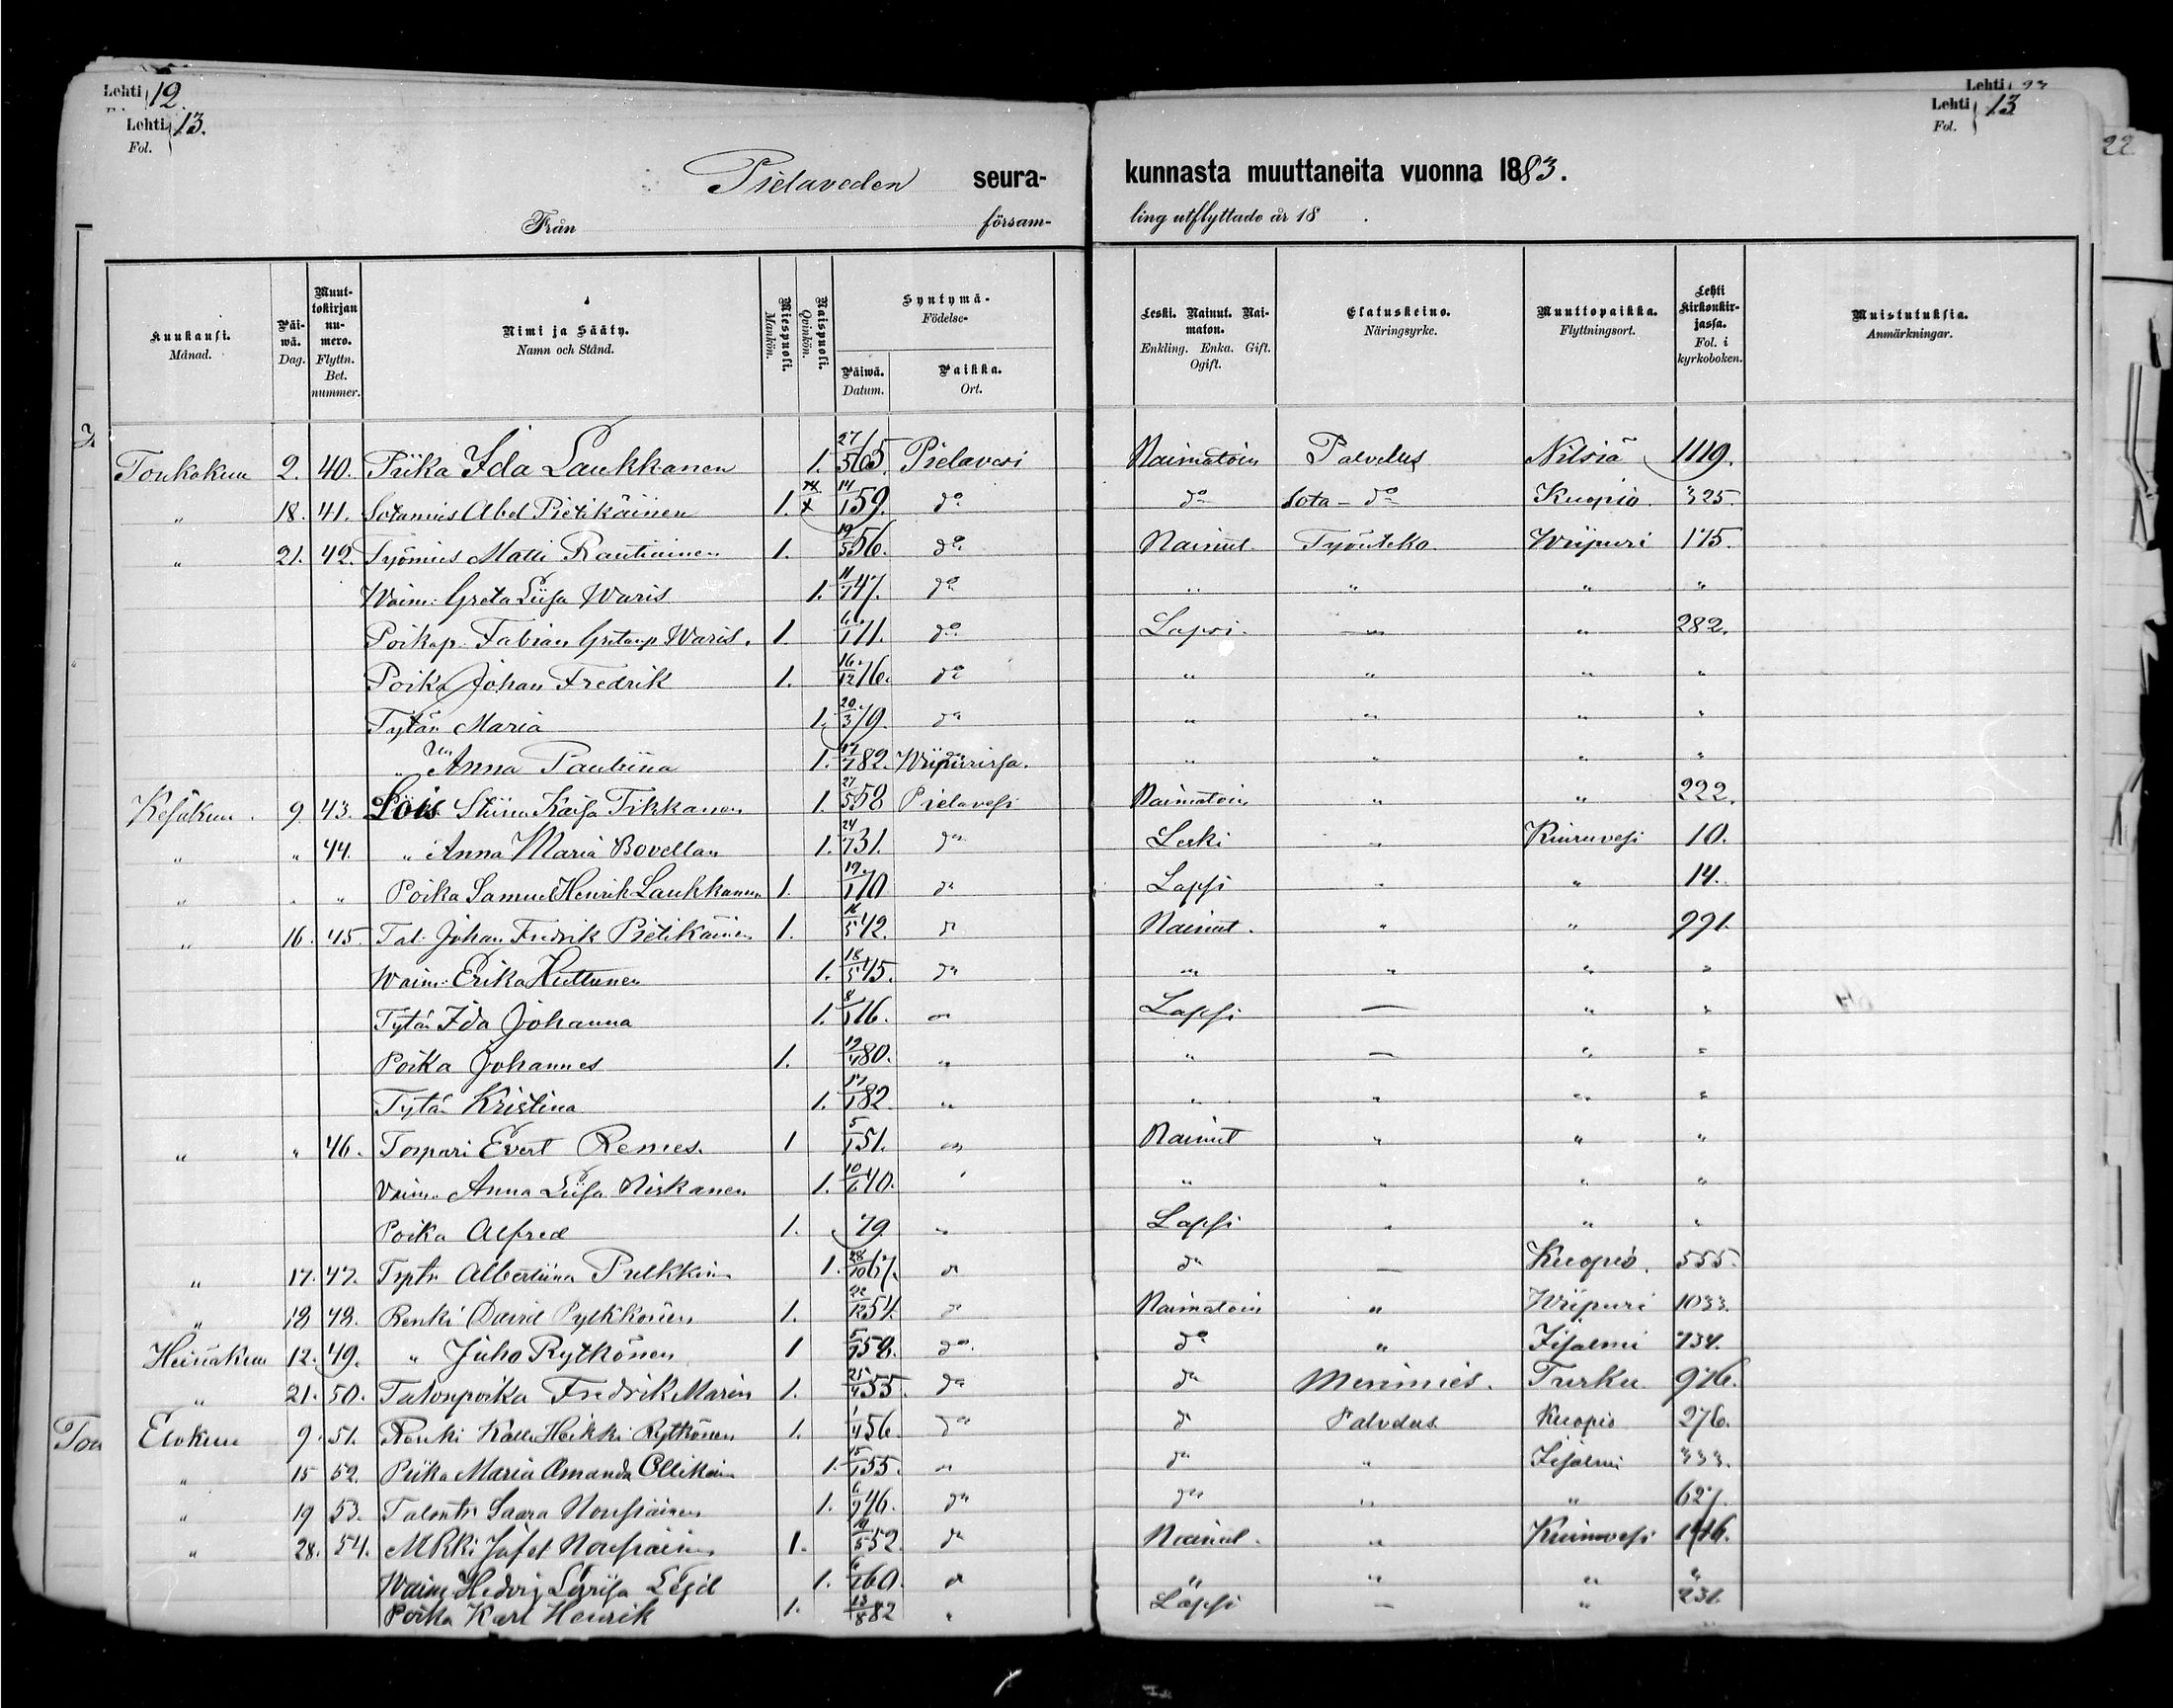 Lehti 12.
Lehti 13.
Fol.
Lehti
Lehti 13
Fol.
22
Pielaveden seura- kunnasta muuttaneita vuonna 1883.
Från försam- ling utflyttade år 18 .
Kuukausi. Månad.
Päi-wä. Dag.
Muut-tokirjan nu-mero. Flyttn. Bet. nummer.
Nimi ja Sääty. Namn och Stånd.
Miespuoli. Mankön.
Naispuoli. Qvinkön.
Syntymä- Födelse-
Päiwä. Datum.
Paikka. Ort.
Leski. Nainut. Nai-maton. Enkling. Enka. Gift. Ogift.
Elatuskeino. Näringsyrke.
Muuttopaikka. Flyttningsort.
Lehti kirkonkir-jassa. Fol. i kyrkoboken.
Muistutuksia. Anmärkningar.
Toukokuu 2. 40. Piika Ida Laukkanen 1. 27/5 65. Pielavesi Naimatoin Palvelus Nilsiä 1119.
" 18. 41. Sotamies Abel Pietikäinen 1. 14/1 59. do do Sota-do Kuopio. 325.
" 21. 42. Työmies Matti Rautiainen 1. 19/5 56. do Nainut. Työnteko. Wiipuri 175.
Waim: Greta Liisa Waris 1. 11/7 47. do " " " "
Poikap. Fabian Gretanp. Waris. 1. 71. do Lapsi. — " 282.
Poika Johan Fredrik 1. 16/12 76. do " " " "
Tytär Maria 1. 20/3 79. do " " " "
" Anna Pauliina 1. 82. Wiipurissa. " " " "
Kesäkuu. 9. 43. Lois Stiina Kaisa Tikkanen 1. 27/5 58 Pielavesi Naimatoin " " 222.
" " 44. " Anna Maria Bovellan 1. 24/7 31. do Leski " Kiuruvesi 10.
" " " Poika Samuel Henrik Laukkanen 1. 19/1 70 do Lapsi " " 14.
" 16. 45. Tal. Johan Fredrik Pietikäinen 1. 16/5 42. do Nainut. " " 991.
Waim: Erika Huttunen 1. 18/5 45. do " " " "
Tytär Ida Johanna 1. 8/1 76. " Lapsi — " "
Poika Johannes 1. 80. " " — " "
Tytär Kristina 1. 82. " " " " "
" " 46. Torpari Evert Remes. 1 5/1 51. " Nainut " " "
Vaim. Anna Liisa Niskanen 1. 10/6 40. " " " " "
Poika Alfred 1. 79. " Lapsi " " "
" 17. 47. Tptr Albertiina Pulkkin 1. 28/10 67. do do — Kuopio. 555.
" 18 48. Renki David Pylkkönen 1. 22/12 54. do Naimatoin " Wiipuri 1033.
Heinäkuu 12. 49. " Juho Rytkönen 1 58. do. do " Iisalmi 734.
" 21. 50. Talonpoika Fredrik Marin 1. 25/4 55. do do Merimies. Turku 976.
Elokuu 9. 51. Renki Kalle Heikki Rytkönen 1. 1/4 56. do do Palvelus Kuopio 276.
" 15 52. Piika Maria Amanda Ollikain 1. 15/1 55. " do " Iisalmi 333.
" 19 53. Talontr Saara Nousiainen 1. 6/9 46. do do " " 627.
" 28. 54. Jafet Nousiainen 1. 19/5 52. do Nainut. " Kiuruvesi 1416.
Waim: Hedvig Lovisa 1. 60. do " " " "
Poika Karl Henrik 1. 13/8 82 " Lapsi — " 231.
Tou